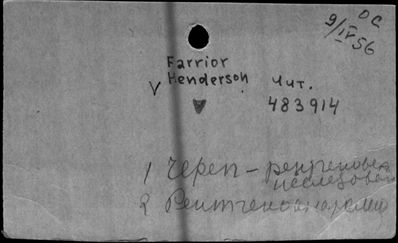 ОС
9/IV 56
Farrior
V Henderson
Чит.
483914
1 Череп – рентгеновск
исследован
2 Рентгеноанатомия